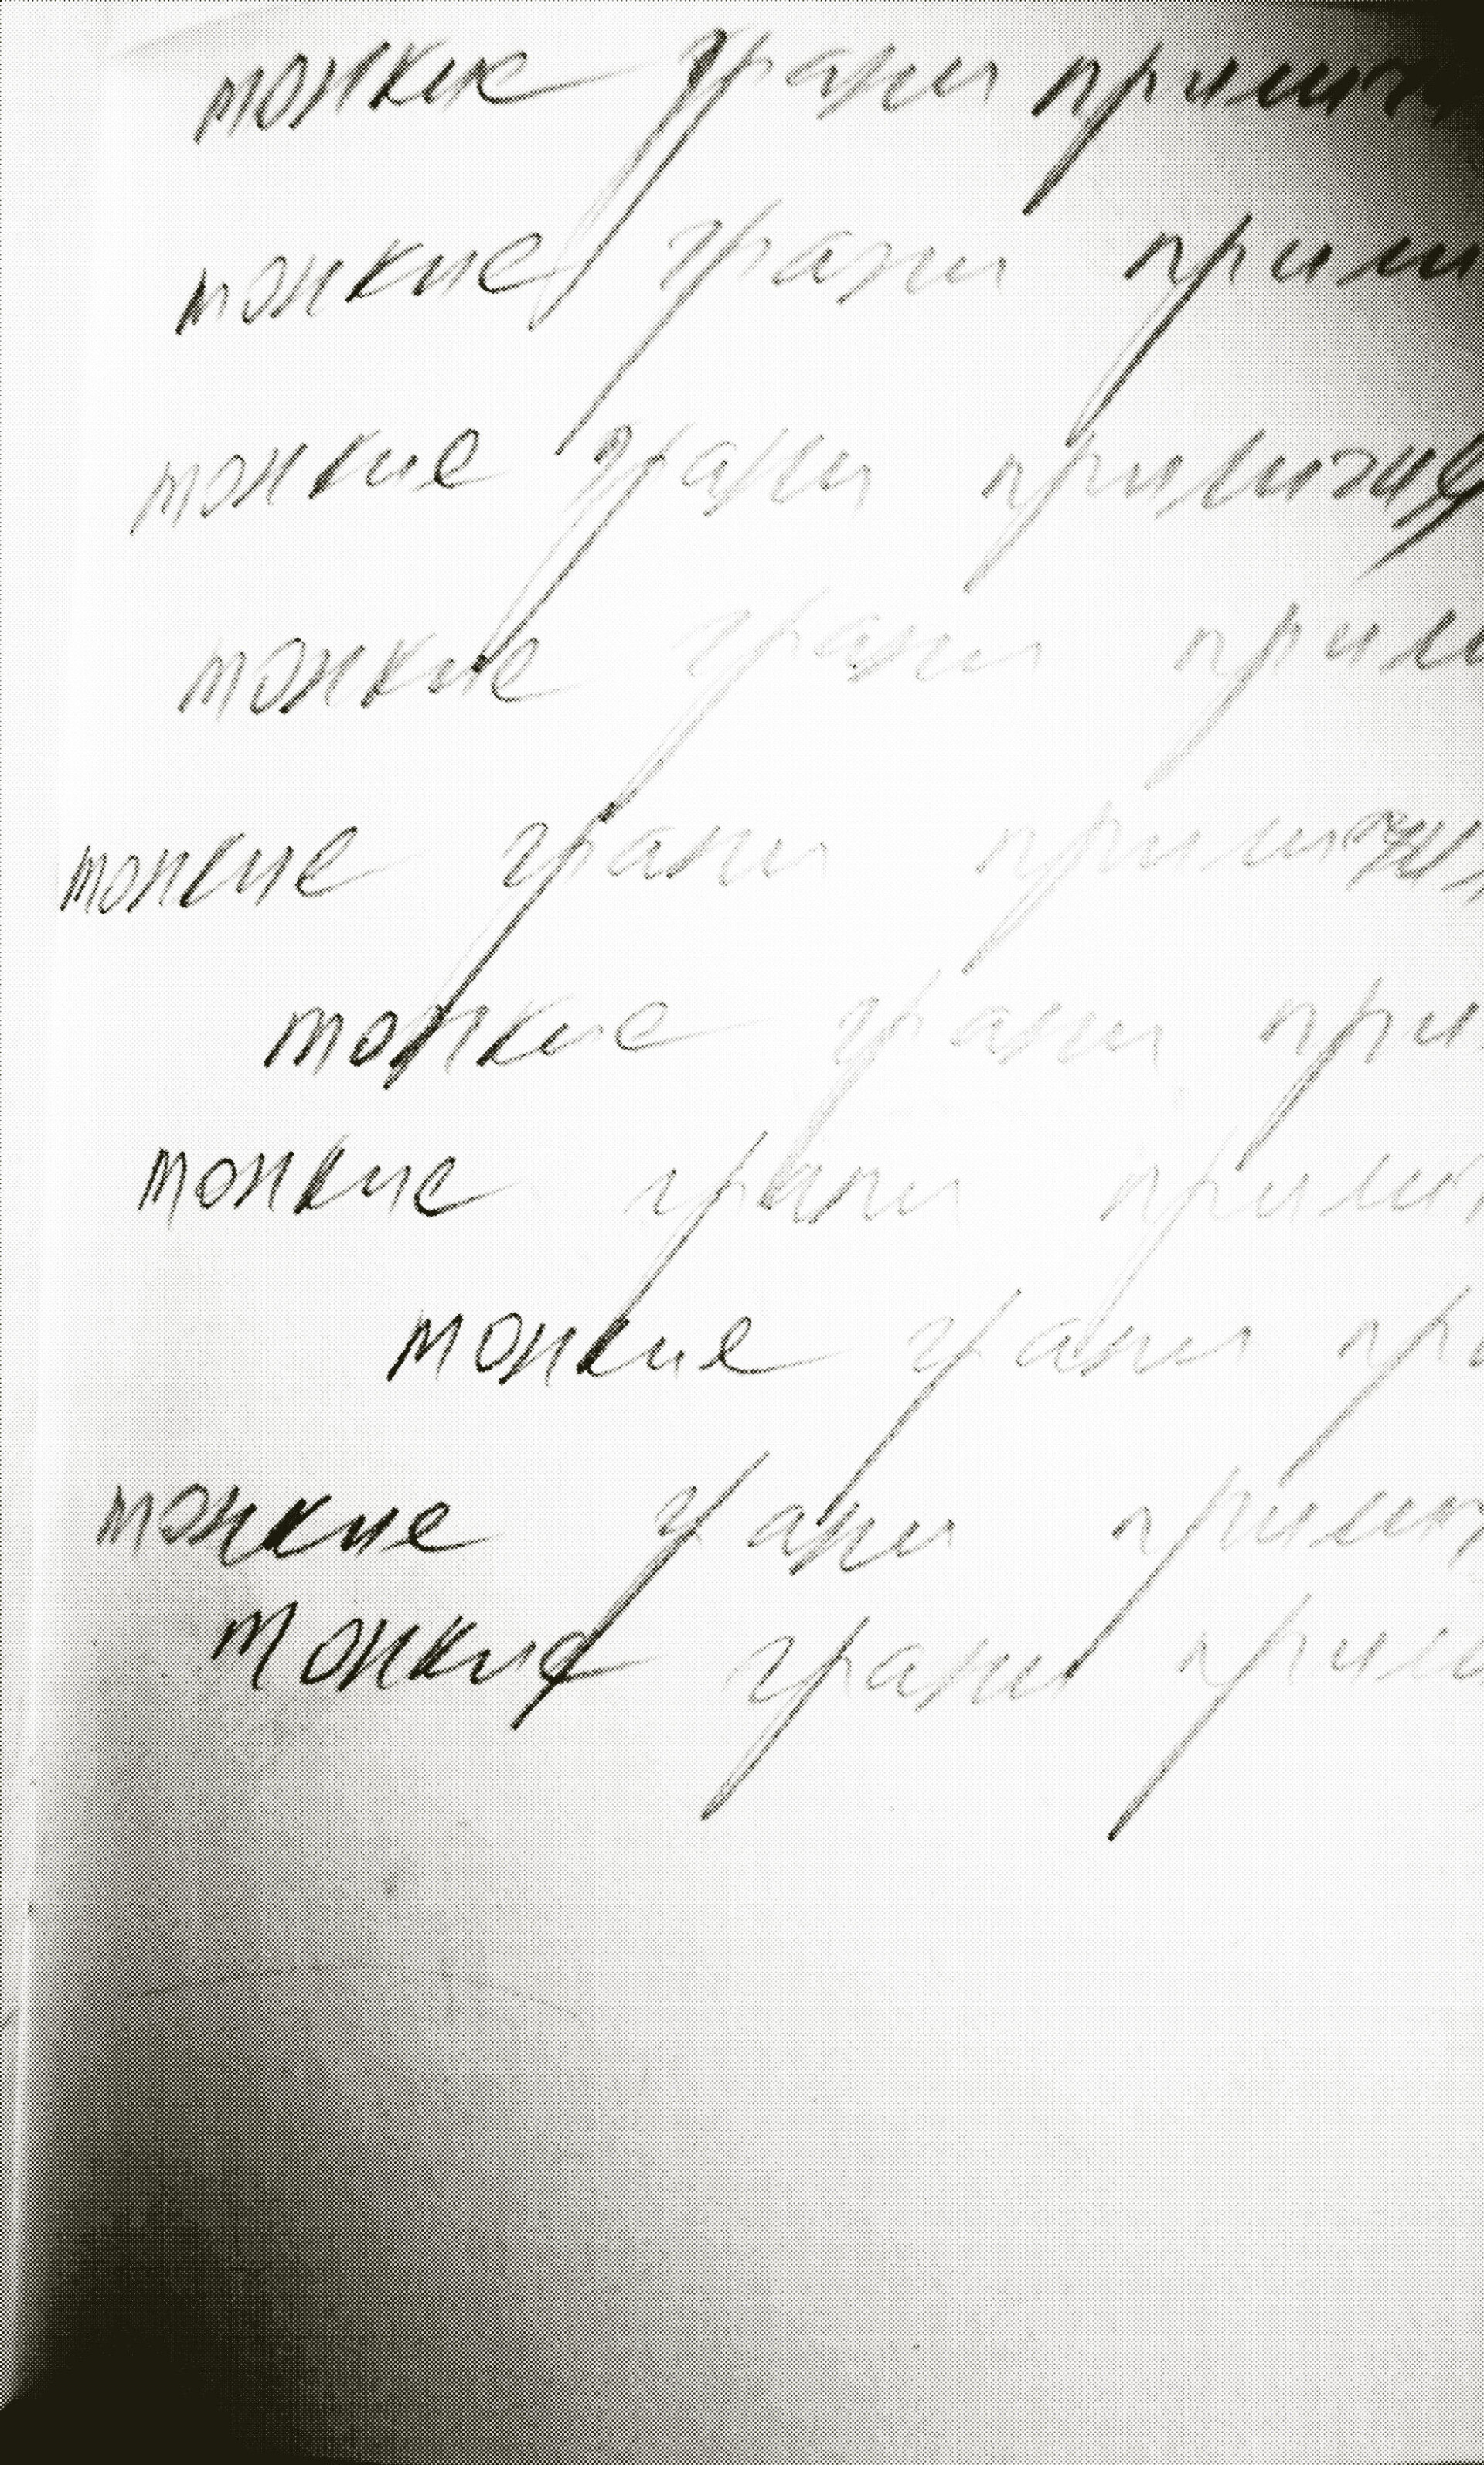 тонкие грани прилич
тонкие грани прили
тонкие грани приличи
тонкие грани прили
тонкие грани приличи
тонкие грани при
тонкие грани прили
тонкие грани при
тонкие грани прилич
тонкие грани прили